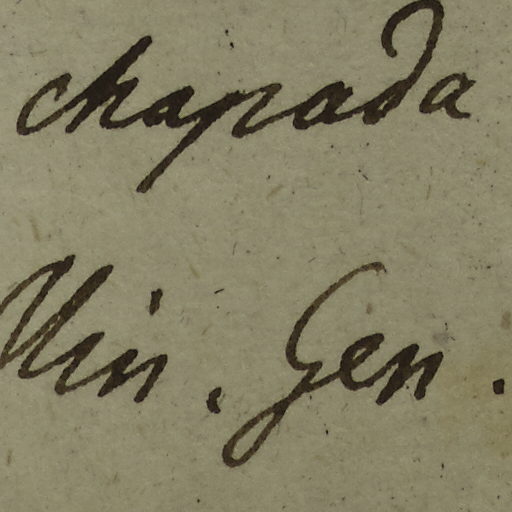 chapada
Min. Gen.